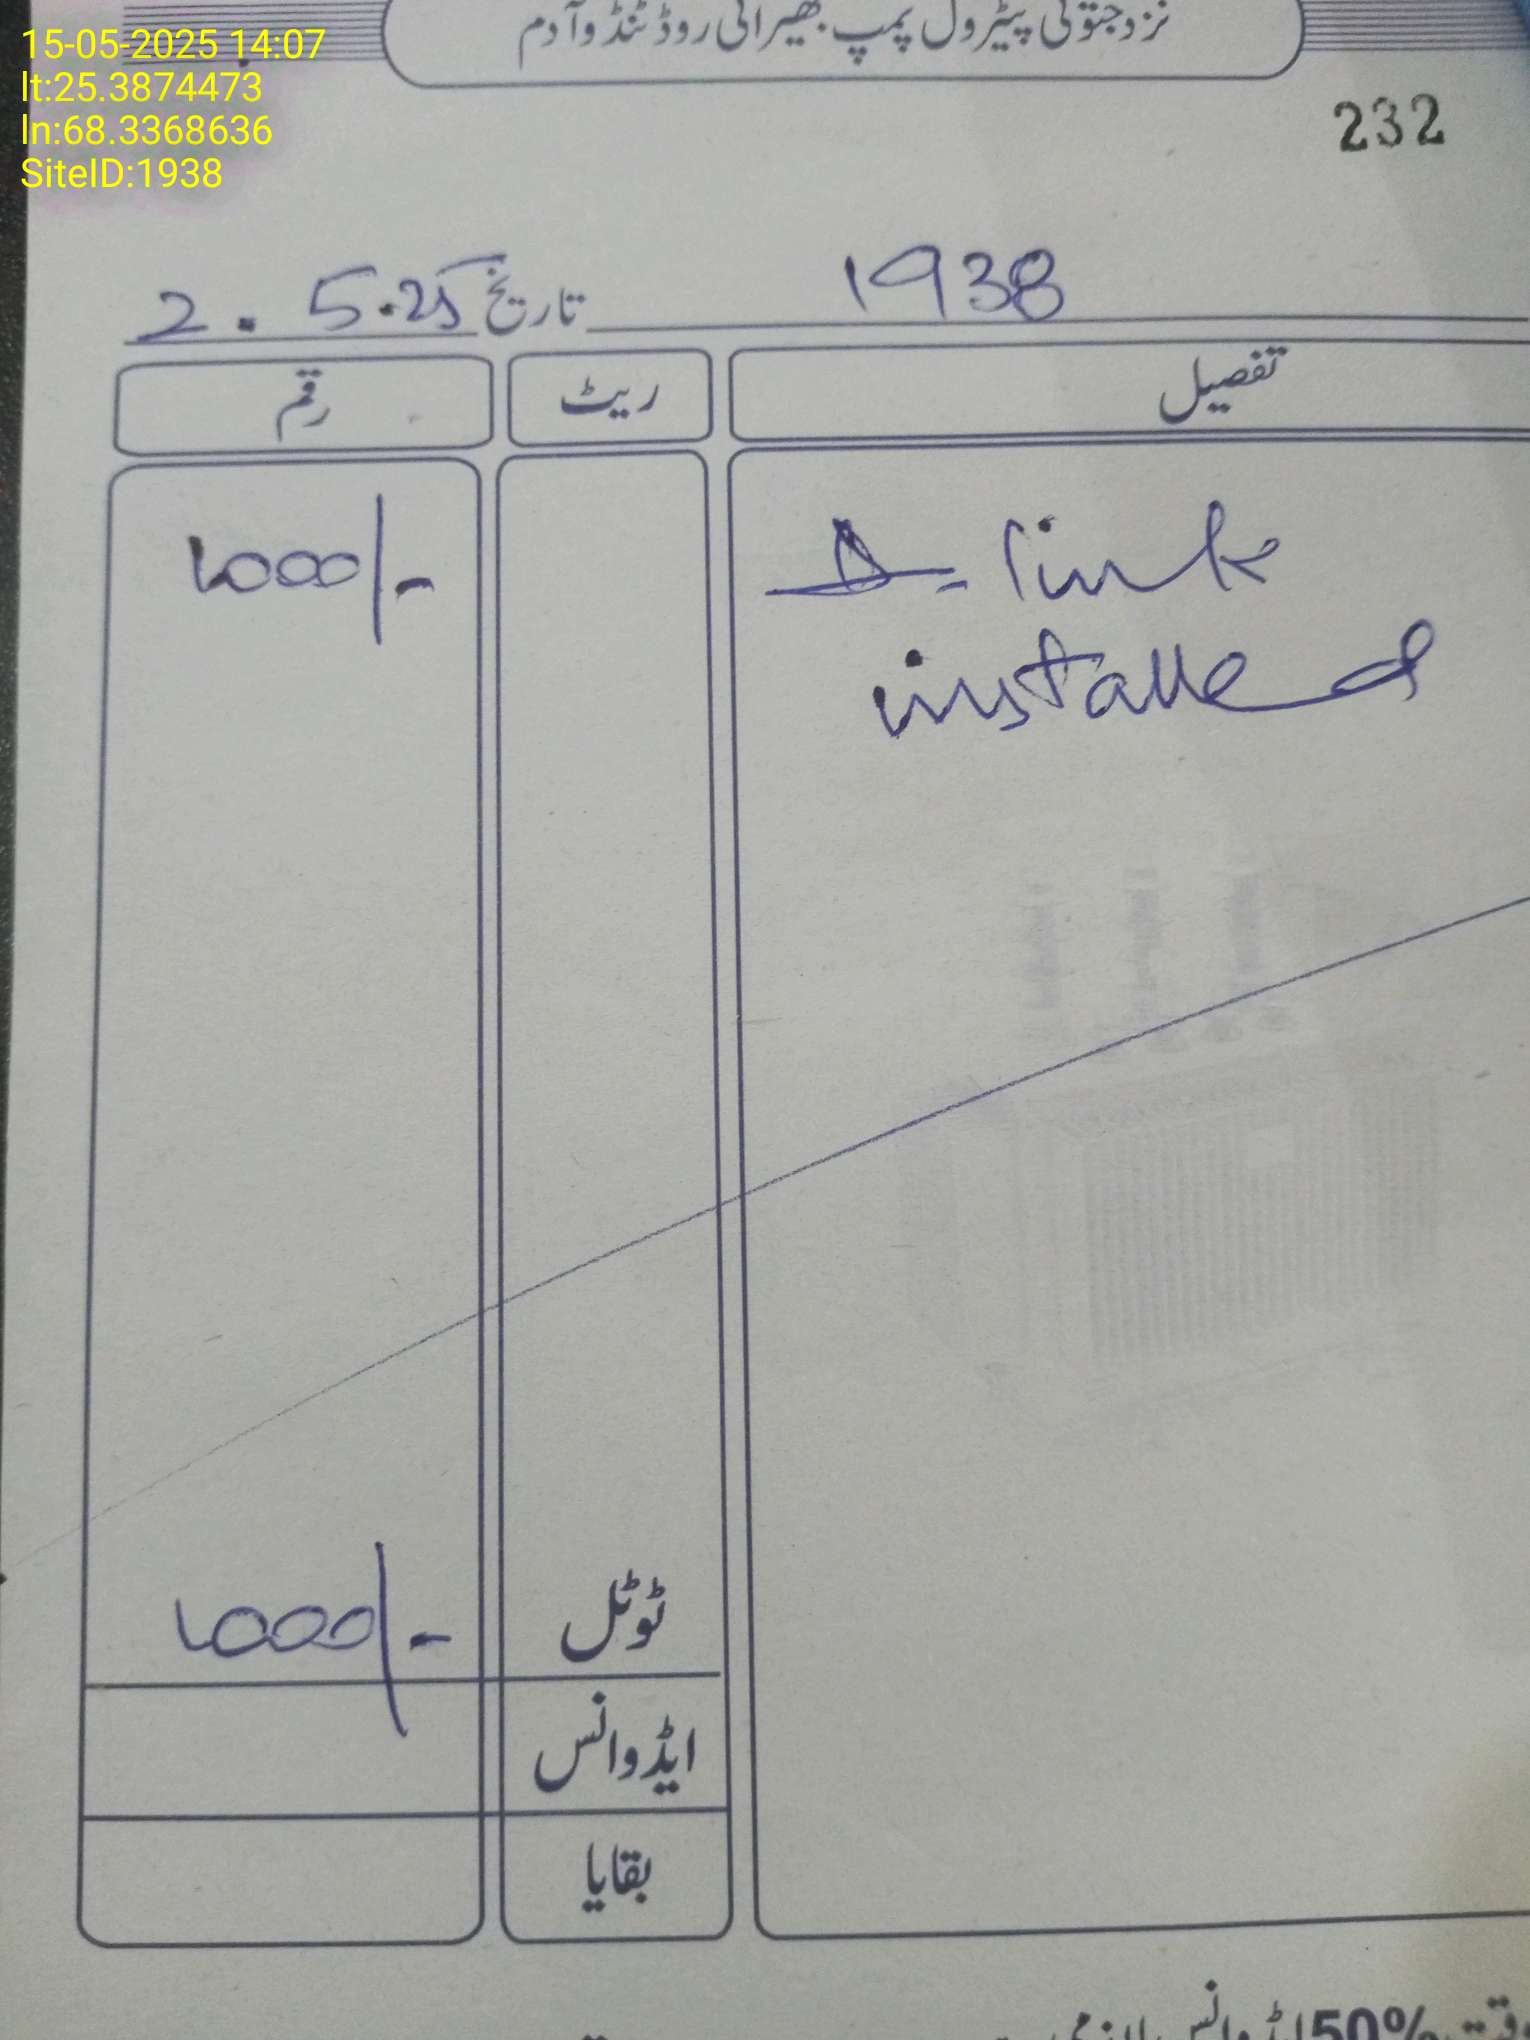 نزد جتوئی پیٹرول پمپ بھیرانی روڈ ٹنڈوآدم
15-05-2025 14:07
lt:25.3874473
ln:68.3368636
SiteID:1938
232
1938
تاریخ 2.5.25
تفصیل ریٹ رقم
D-link 1000/-
installed
ٹوٹل 1000/-
ایڈوانس
بقایا
50% ایڈوانس